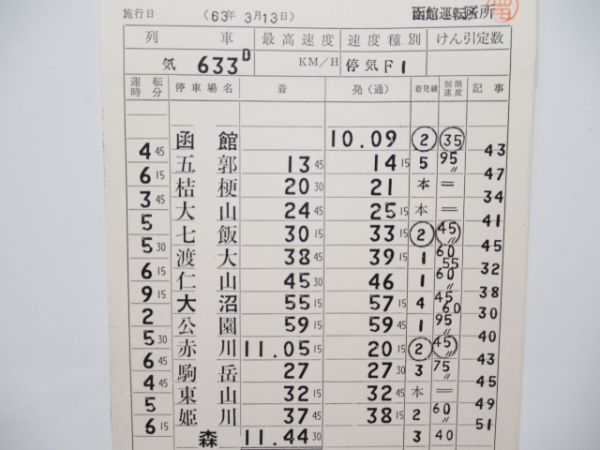 施行日 (63年 3月13日) 函館運転区所
列 車 最高速度 速度種別 けん引定数
気 633D KM/H 停気F1
運転時分 停車場名 着 発(通) 着発線 制限速度 記事
函館 10.09 ② ㉟
4 45 43
五郭 13 45 14 15 5 95〃
6 15 47
桔梗 20 30 21 本 =
3 45 34
大山 24 45 25 15 本 =
5 41
七飯 30 15 33 15 ② 45〃
5 30 45
渡大 38 45 39 15 1 60 55
6 15 32
仁山 45 30 46 1 60〃
9 15 38
大沼 55 15 57 15 4 45 60
2 30
公園 59 15 59 45 1 95〃
5 30 40
赤川 11.05 15 20 15 ② 45〃
6 45 43
駒岳 27 27 30 3 75〃
4 45 45
東山 32 15 32 45 本 =
5 49
姫川 37 45 38 15 2 60〃
6 15 51
森 11.44 30 3 40